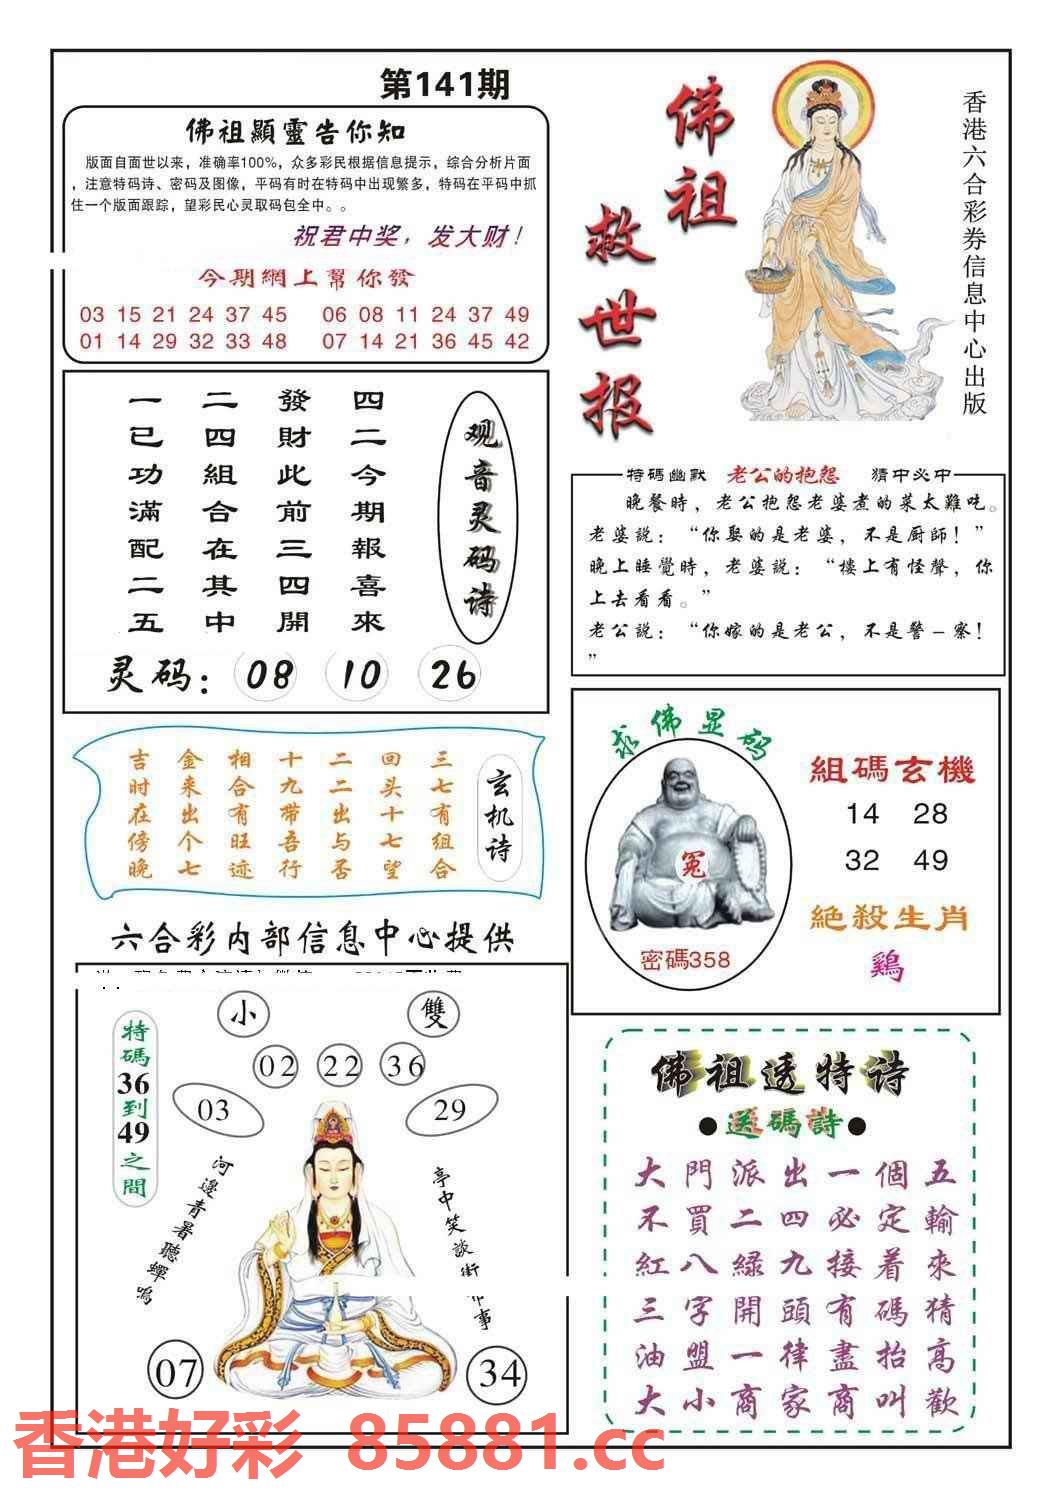 第141期
佛祖顯靈告你知
版面自面世以来，准确率100%，众多彩民根据信息提示，综合分析片面
，注意特码诗、密码及图像，平码有时在特码中出现繁多，特码在平码中抓
住一个版面跟踪，望彩民心灵取码包全中。。
祝君中奖，发大财！
今期網上幫你發
03 15 21 24 37 45 06 08 11 24 37 49
01 14 29 32 33 48 07 14 21 36 45 42
佛祖
救世报
香港六合彩券信息中心出版
观音灵码诗
四二今期報喜來
發財此前三四開
二四組合在其中
一已功滿配二五
灵码：08 10 26
特碼幽默 老公的抱怨 猜中必中
晚餐時，老公抱怨老婆煮的菜太難吃。
老婆説：“你娶的是老婆，不是厨師！”
晚上睡覺時，老婆説：“樓上有怪聲，你
上去看看。”
老公説：“你嫁的是老公，不是警－察！
”
玄机诗
三七有组合
回头十七望
二二出与否
十九带吾行
相合有旺迹
金来出个七
吉时在傍晚
求佛显码
冤
密碼358
組碼玄機
14 28
32 49
絶殺生肖
鷄
六合彩内部信息中心提供
小 雙
02 22 36
03 29
特碼36到49之間
河邊青暑聽蟬鳴
亭中笑談街
事
07 34
佛祖透特诗
●送碼詩●
大門派出一個五
不買二四必定輸
紅八緑九接着來
三字開頭有碼猜
油盟一律盡抬高
大小商家商叫歡
香港好彩 85881.cc